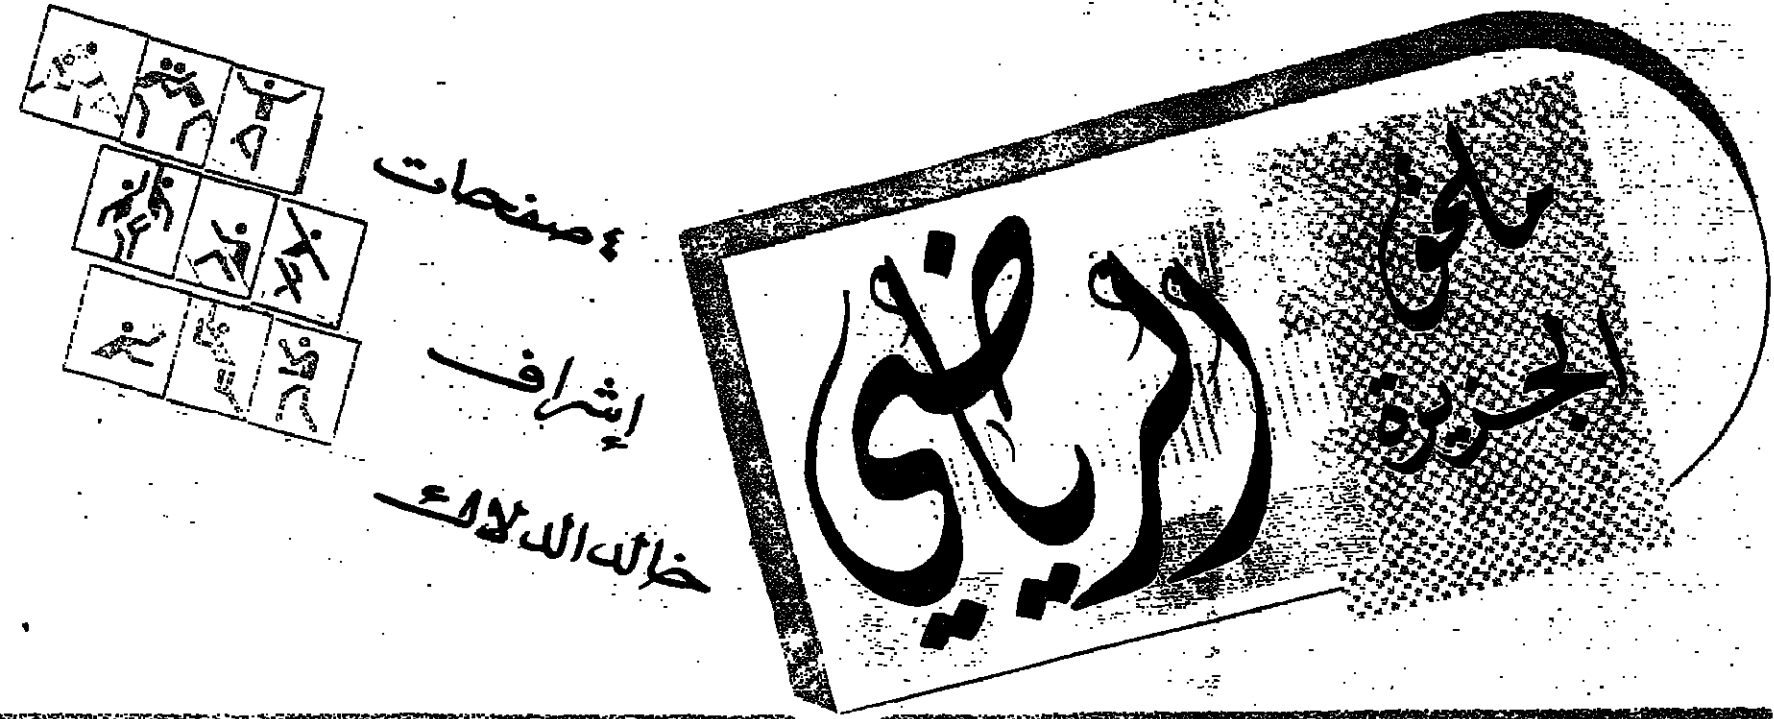 ملحق
الجزيرة
الرياضي
٤ صفحات
إشراف
خالد الدلاك